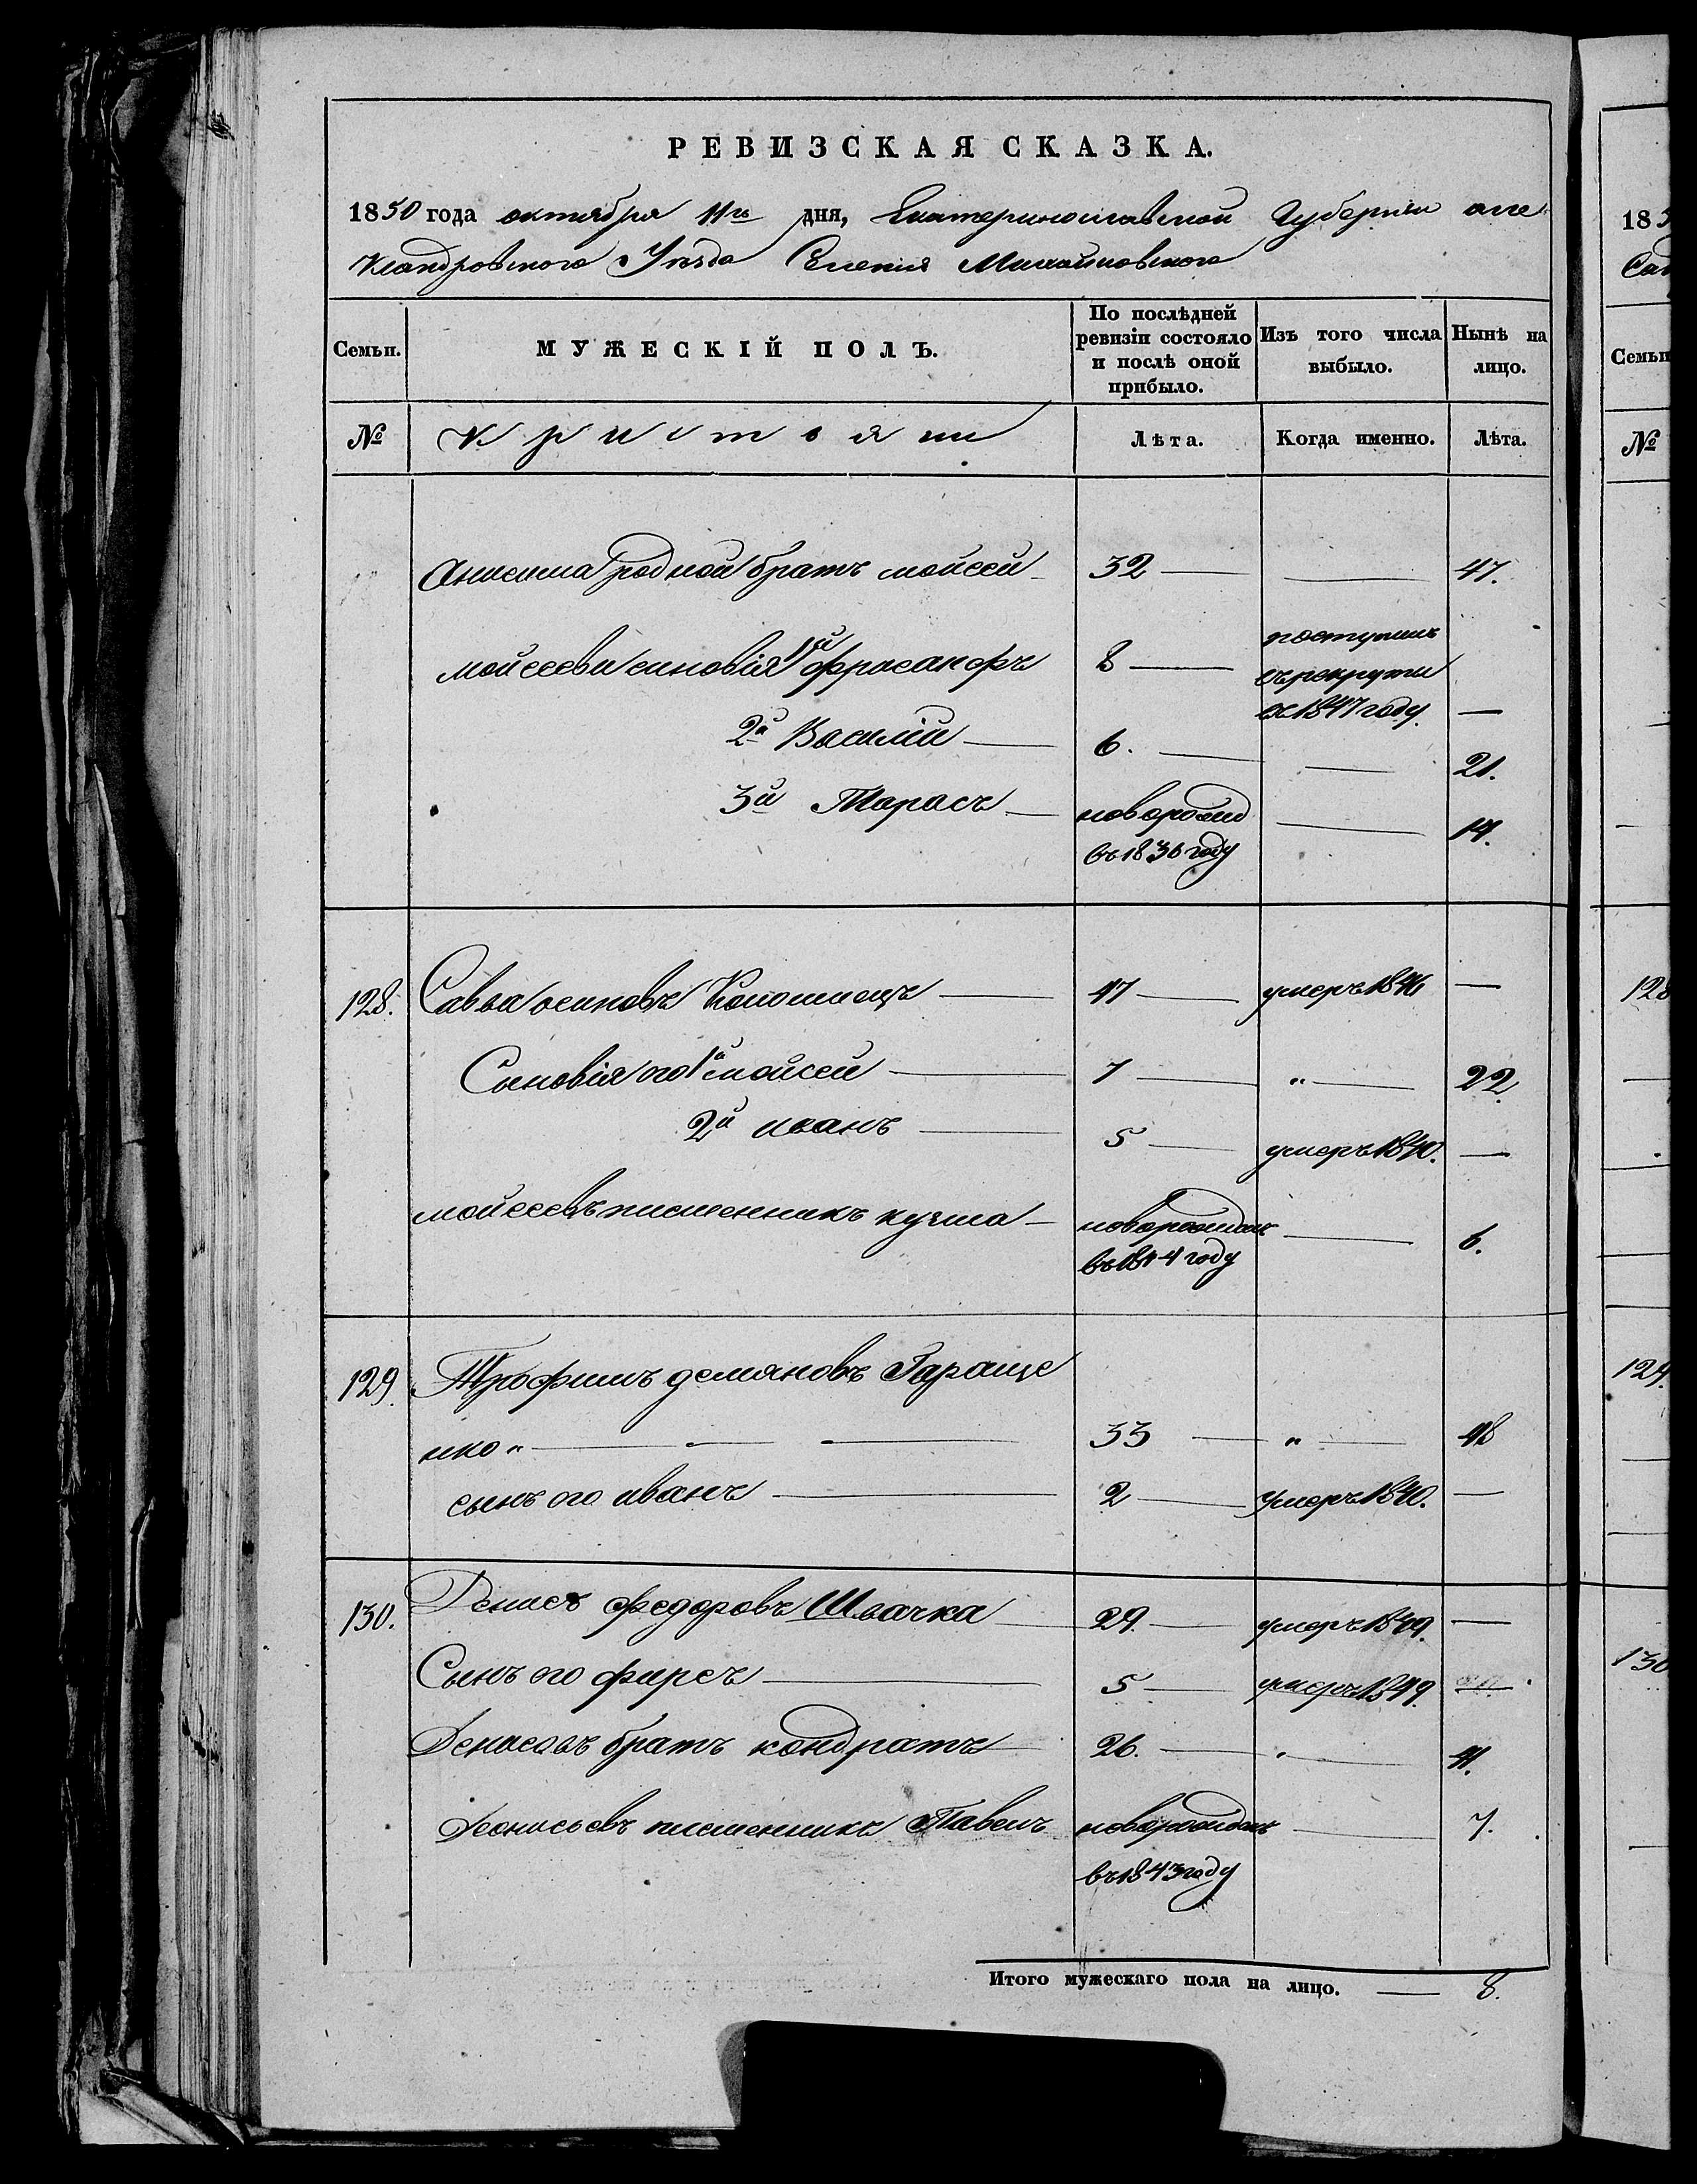 РЕВИЗСКАЯ СКАЗКА.
1850 года октября 11го дня, Екатеринославской Губернии але
ксандровского Уезда Селения Михайловского
Семьи. МУЖЕСКІЙ ПОЛЪ. По послѣдней ревизіи состояло и послѣ оной прибыло. Изъ того числа выбыло. Нынѣ на лицо.
№ Лѣта. Когда именно. Лѣта.
Анисима родной братъ мойсей 32 — — 47.
мойсеевы синовія 1й 8 — поступилъ въ рекруты въ 1847 году —
2й Василій — 6. — — 21.
3й Тарасъ — новорожд въ 1836 году — 14.
128. Савва осиповъ Коломиецъ — 47 — умеръ 1846 —
Сыновія его 1й мойсей — 7 — „ — 22.
2й иванъ — 5 — умеръ 1840. —
мойсеевъ племенникъ кузма — новорожден въ 1844 году — 6.
129. Трофимъ демяновъ Гараще
нко „ — — — 33 — „ — 48
сынъ его иванъ — 2 — умеръ 1840. —
130. Денисъ федоровъ Швачка 29. — умеръ 1849. —
Сынъ его фирсъ — 5 — умеръ 1849. —
Денисовъ братъ кондратъ 26. — — 41.
племенникъ Павелъ новорожден въ 1843 году — 7.
Итого мужескаго пола на лицо. — 8.
185
Сел
Семьи
№
128
129.
130